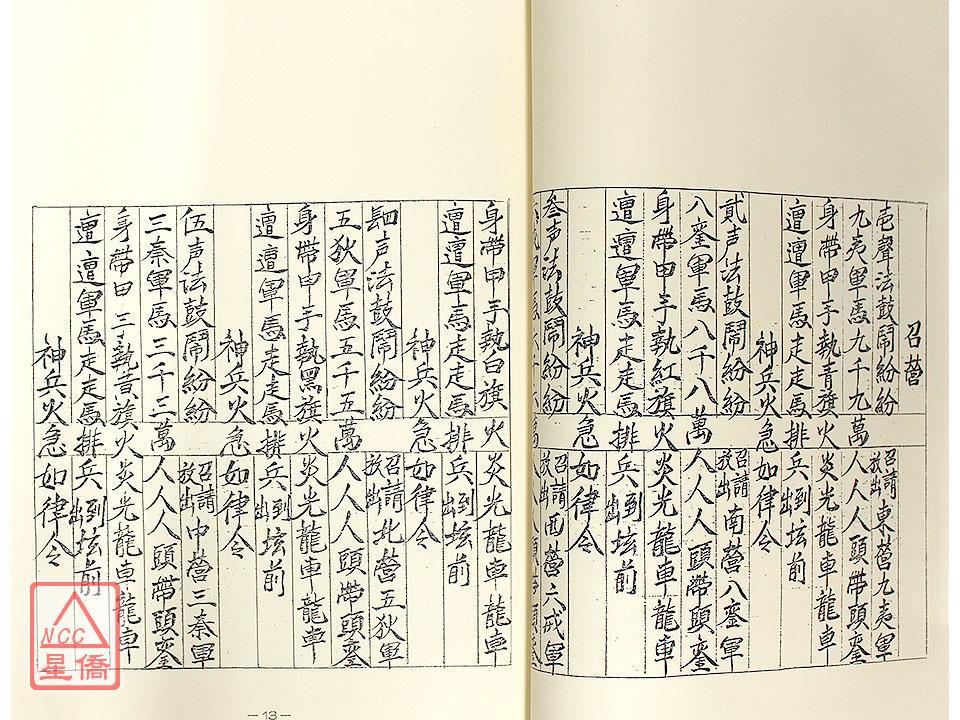 召營
壱聲法鼓鬧紛紛 召請東營九夷軍 放出
九夷軍馬九千九萬 人人人頭帶頭鍪
身帶甲手執青旗 火炎光龍車龍車
遭遭軍馬走走馬 排兵出到坛前
神兵火急如律令
貳声法鼓鬧紛紛 召請南營八蛮軍 放出
八蛮軍馬八千八萬 人人人頭帶頭鍪
身帶甲手執紅旗 火炎光龍車龍車
遭遭軍馬走走馬 排兵出到坛前
神兵火急如律令
叁声法鼓鬧紛紛 召請西營六戎軍 放出
身帶甲手執白旗 火炎光龍車龍車
遭遭軍馬走走馬 排兵出到坛前
神兵火急如律令
肆声法鼓鬧紛紛 召請北營五狄軍 放出
五狄軍馬五千五萬 人人人頭帶頭鍪
身帶甲手執黑旗 火炎光龍車龍車
遭遭軍馬走走馬 排兵出到坛前
神兵火急如律令
伍声法鼓鬧紛紛 召請中營三秦軍 放出
三秦軍馬三千三萬 人人人頭帶頭鍪
身帶甲手執黃旗 火炎光龍車龍車
遭遭軍馬走走馬 排兵出到坛前
神兵火急如律令
—13—
NCC
星僑